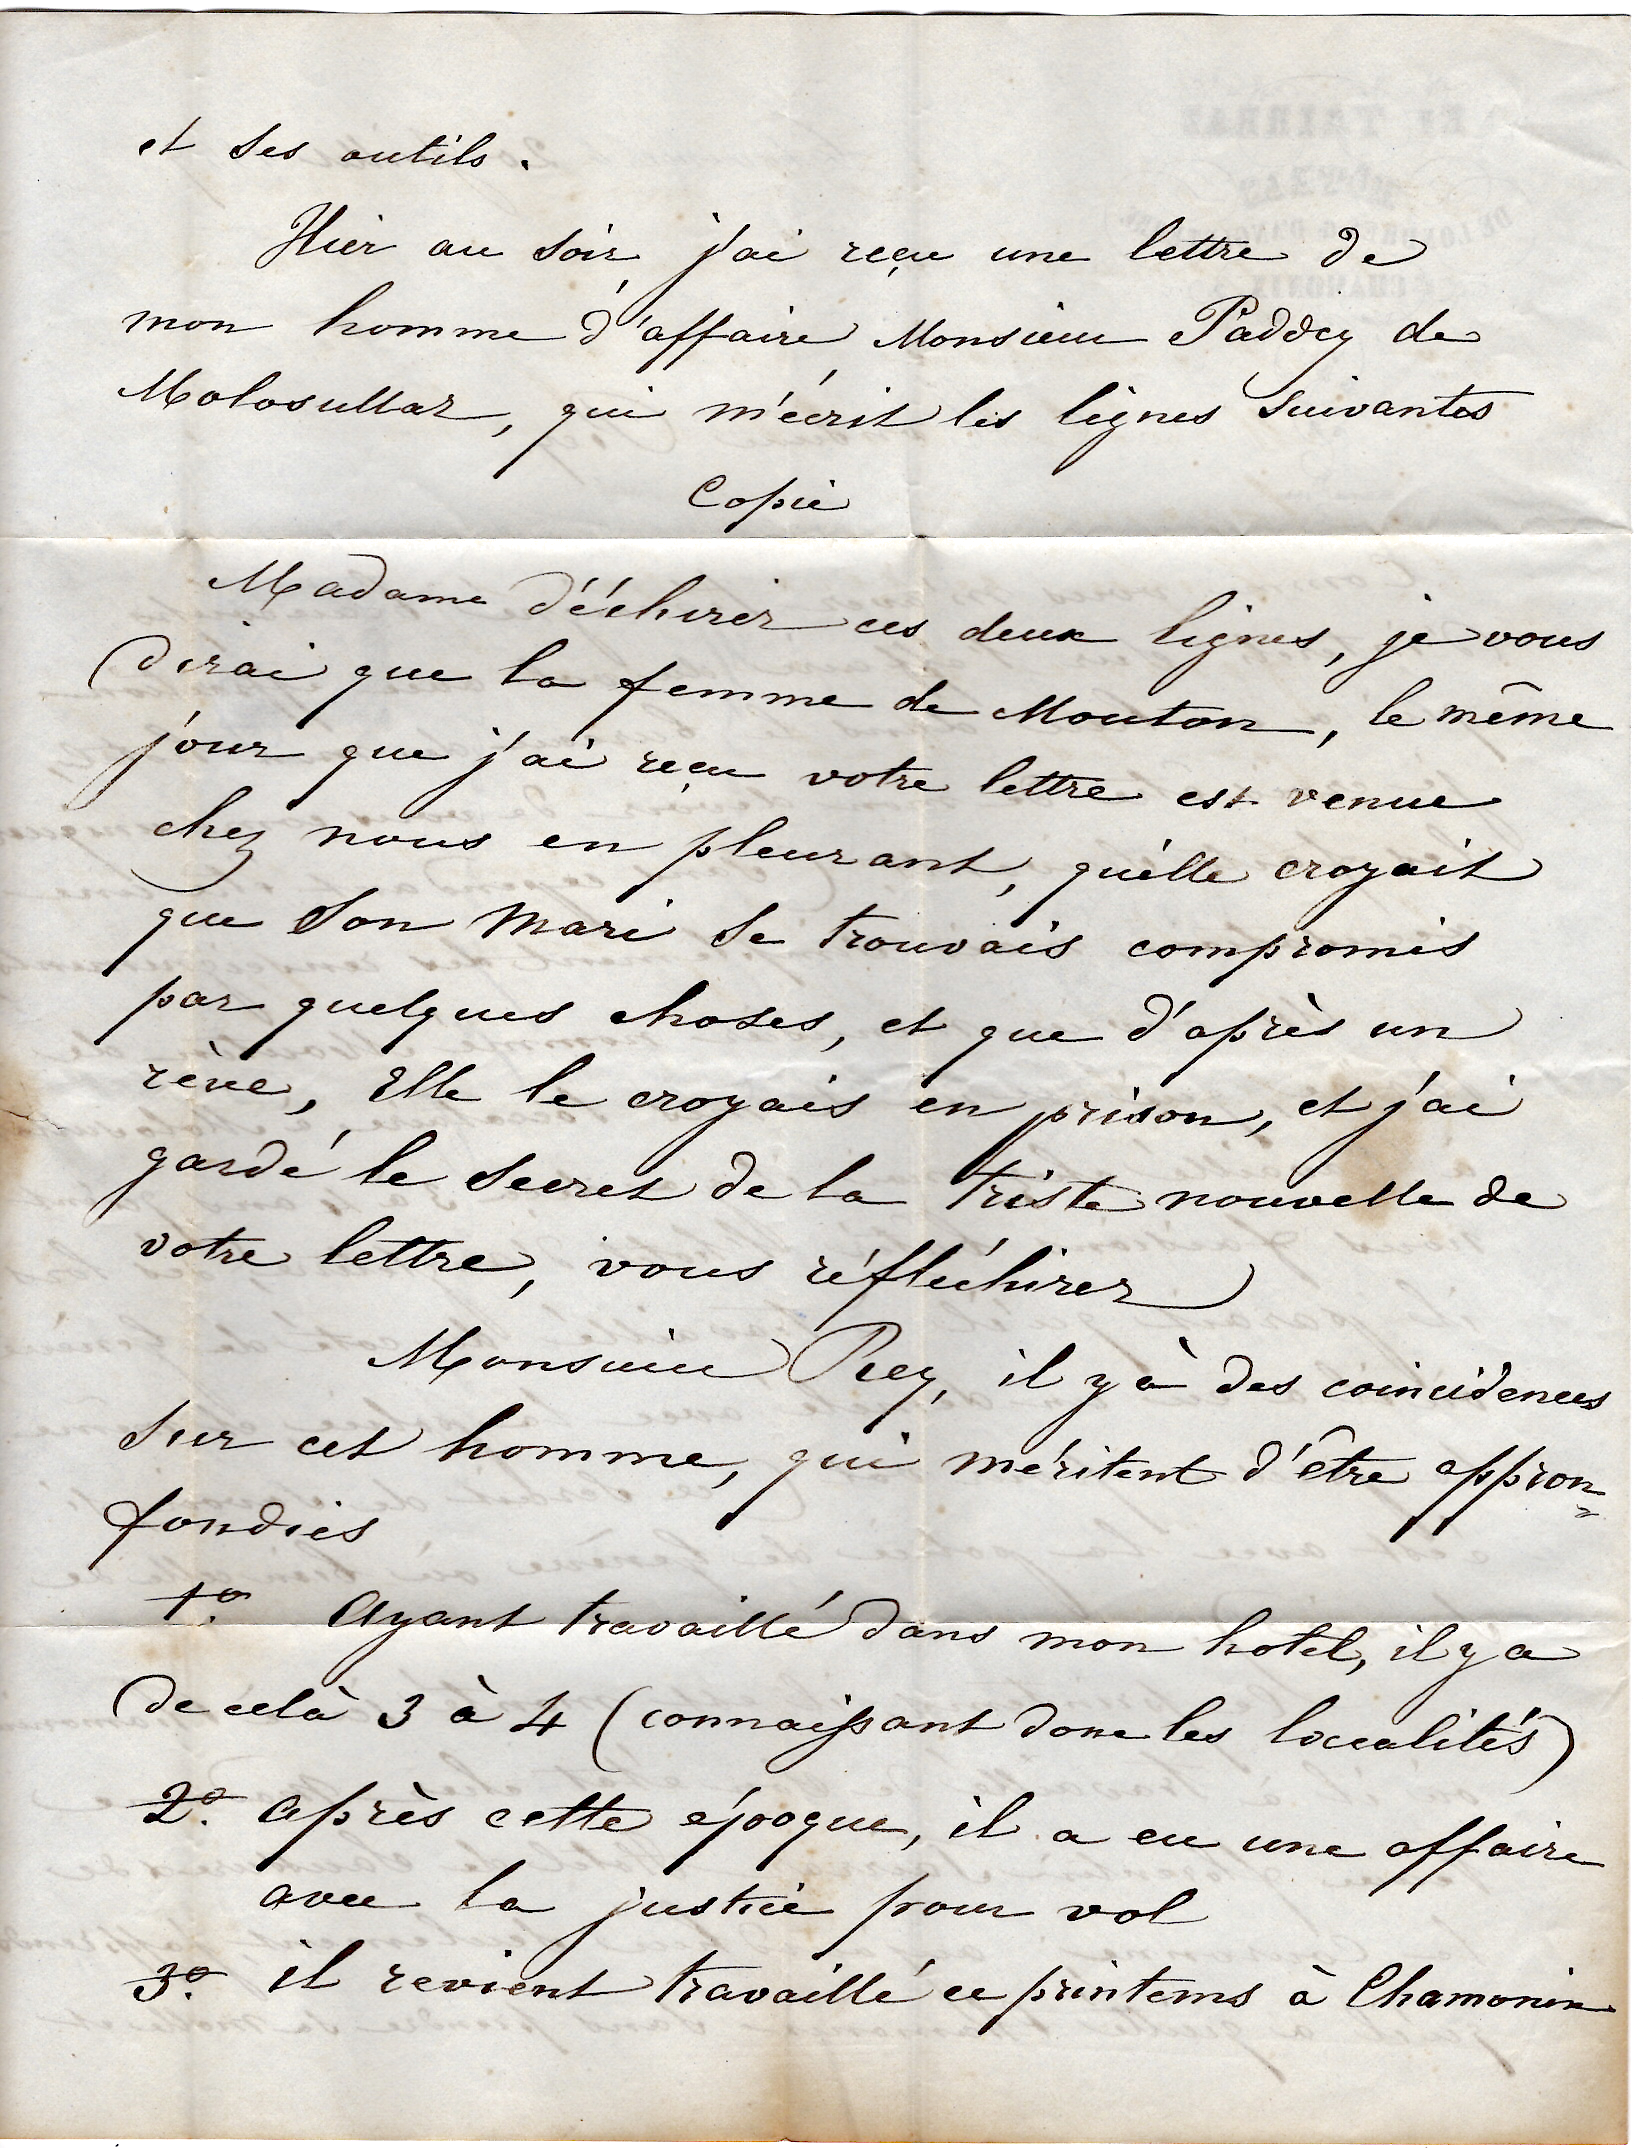 et ses outils.
Hier au soir j'ai reçu une lettre de
mon homme d'affaire Monsieur Paddey de
Molosullaz, qui m'écrit les lignes suivantes
Copie
Madame déchirer ces deux lignes, je vous
dirai que la femme de Mouton, le même
jour que j'ai reçu votre lettre est venue
chez nous en pleurant, qu'elle croyait
que son mari se trouvais compromis
par quelques choses, et que d'après un
rève, Elle le croyais en prison, et j'ai
gardé le secret de la triste nouvelle de
votre lettre, vous réfléchirez
Monsieur il y à des coincidences
sur cet homme, qui méritent d'être appron=
fondies
1º. Ayant travaillé dans mon hotel, il y a
de celà 3 à 4 (connaissant donc les localités)
2º. après cette époque, il a eu une affaire
avec la justice pour vol
3º. il revient travaillé ce printems à Chamonix